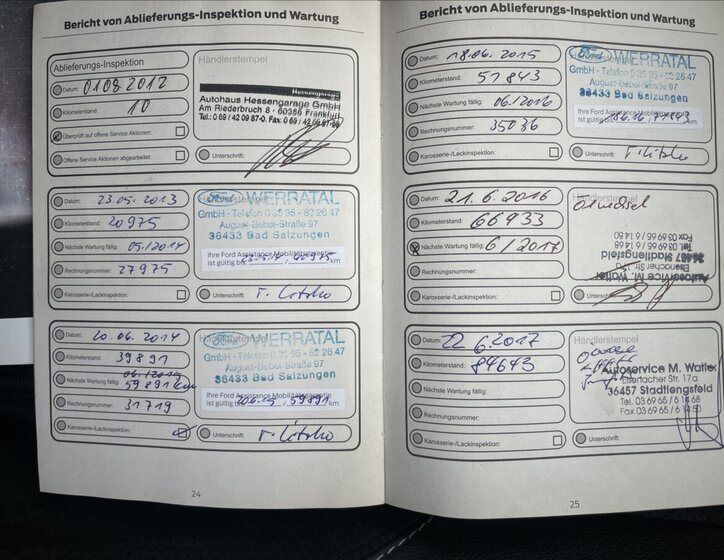 Bericht von Ablieferungs-Inspektion und Wartung
Ablieferungs-Inspektion
Datum: 01 08 2012
Kilometerstand: 10
Überprüft auf offene Service Aktionen:
Offene Service Aktionen abgearbeitet:
Händlerstempel
Hessengarage
Autohaus Hessengarage GmbH
Am Riederbruch 8 - 60386 Frankfurt
Tel.: 0 69 / 42 09 87-0, Fax: 0 69 /
Unterschrift:
Datum: 23.05.2013
Kilometerstand: 20975
Nächste Wartung fällig: 05.2014
Rechnungsnummer: 27975
Karosserie-/Lackinspektion:
Händlerstempel
Ford WERRATAL
GmbH · Telefon 0 36 95 - 62 26 47
August-Bebel-Straße 97
36433 Bad Salzungen
Ihre Ford Assistance Mobilitätsgarantie
ist gültig bis km
Unterschrift:
Datum: 20.06.2014
Kilometerstand: 39891
Nächste Wartung fällig: 59891 km
Rechnungsnummer: 31719
Karosserie-/Lackinspektion:
Händlerstempel
Ford WERRATAL
GmbH · Telefon 0 36 95 - 62 26 47
August-Bebel-Straße 97
36433 Bad Salzungen
Ihre Ford Assistance Mobilitätsgarantie
ist gültig bis 59891 km
Unterschrift:
24
Bericht von Ablieferungs-Inspektion und Wartung
Datum: 18.06.2015
Kilometerstand: 57843
Nächste Wartung fällig: 06.2016
Rechnungsnummer: 35036
Karosserie-/Lackinspektion:
Händlerstempel
Ford WERRATAL
GmbH · Telefon 0 36 95 - 62 26 47
August-Bebel-Straße 97
36433 Bad Salzungen
Ihre Ford Assistance Mobilitätsgarantie
ist gültig bis km
Unterschrift:
Datum: 21.6.2016
Kilometerstand: 66933
Nächste Wartung fällig: 6/2017
Rechnungsnummer:
Karosserie-/Lackinspektion:
Händlerstempel
Ölwechsel
Autoservice M. Walter
Eisenacher Str. 17a
36457 Stadtlengsfeld
Tel. 03 69 65 / 6 14 68
Fax 03 69 65 / 6 14 50
Unterschrift:
Datum: 22.6.2017
Kilometerstand: 84643
Nächste Wartung fällig:
Rechnungsnummer:
Karosserie-/Lackinspektion:
Händlerstempel
Autoservice M. Walter
Eisenacher Str. 17a
36457 Stadtlengsfeld
Tel. 03 69 65 / 6 14 68
Fax 03 69 65 / 6 14 50
Unterschrift:
25